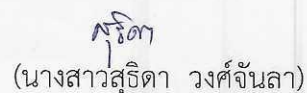 สุธิดา
(นางสาวสุธิดา วงศ์จันลา)